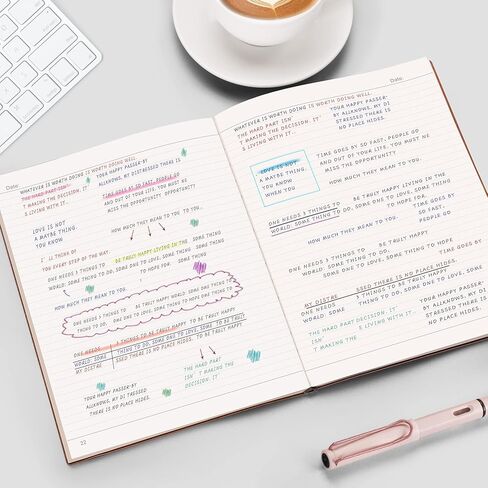 Date:
WHATEVER IS WORTH DOING IS WORTH DOING WELL.
THE HARD PART ISN'
T MAKING THE DECISION. IT'
S LIVING WITH IT.
YOUR HAPPY PASSER-BY
ALLKNOWS, MY DISTRESSED THERE IS
NO PLACE HIDES.
TIME GOES BY SO FAST, PEOPLE GO
AND OUT OF YOUR LIFE. YOU MUST NE
MISS THE OPPORTUNITY
LOVE IS NOT
A MAYBE THING.
YOU KNOW
HOW MUCH THEY MEAN TO YOU TO YOU.
I' LL THINK OF
YOU EVERY STEP OF THE WAY.
BE TRULY HAPPY LIVING IN THE SOME THING
ONE NEEDS 3 THINGS TO
WORLD: SOME THING TO DO, SOME ONE TO LOVE, SOME THING
TO HOPE FOR. SOME THING
HOW MUCH THEY MEAN TO YOU.
ONE NEEDS 3 THINGS TO BE TRULY HAPPY WORLD: SOME ONE THING
THING TO DO, ONE TO LOVE, SOME THING TO HOPE THING TO
ONE NEEDS 3 THINGS TO BE TRULY HAPPY TO BE TRULY HAPPY
WORLD: SOME THING TO DO, SOME ONE TO LOVE, SOME TO BE TRULY
MY DISTRE SSED THERE IS NO PLACE HIDES. TO BE TRULY HAPPY
YOUR HAPPY PASSER-BY
ALLKNOWS, MY DI TRESSED
THERE IS NO PLACE HIDES.
THE HARD PART
ISN' T MAKING THE
DECISION. IT
22
Date:
WHATEVER IS WORTH DOING IS WORTH DOING WELL.
THE HARD PART ISN'
T MAKING THE DECISION. IT'
S LIVING WITH IT.
YOUR HAPPY PASSER-
BY ALLKNOWS, MY DI
STRESSED THERE IS
NO PLACE HIDES.
LOVE IS NOT
A MAYBE THING.
YOU KNOW
WHEN YOU
TIME GOES BY SO FAST, PEOPLE GO
AND OUT OF YOUR LIFE. YOU MUST NE
MISS THE OPPORTUNITY
HOW MUCH THEY MEAN TO YOU.
ONE NEEDS 3 THINGS TO BE TRULY HAPPY LIVING IN THE
WORLD: SOME THING TO DO, SOME ONE TO LOVE, SOME THING
TO HOPE FOR.
HOW MUCH THEY MEAN TO YOU.
TIME GOES BY
SO FAST, PE
OPLE GO
ONE NEEDS 3 THINGS TO BE TRULY HAPPY
SOME ONE TO LOVE, SOME THING TO HOPE
MY DISTRE SSED THERE IS NO PLACE HIDES.
ONE NEEDS 3 THINGS TO BE TRULY HAPPY
WORLD: SOME THING TO DO, SOME ONE TO LOVE, SOME
THE HARD PART DECISION. IT'
ISN' S LIVING WITH IT.
T MAKING THE
YOUR HAPPY PASSER-
BY ALLKNOWS, MY DI
STRESSED THERE IS
NO PLACE HIDES.